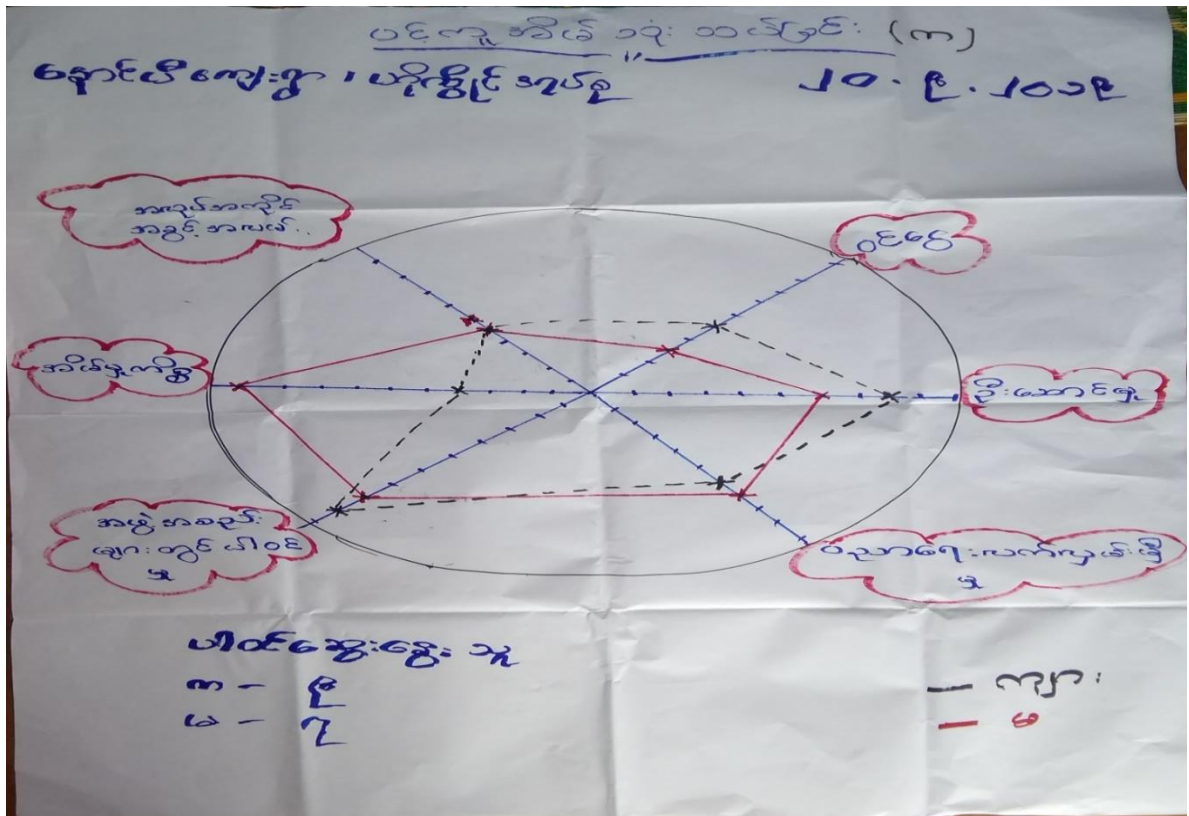 ပင့်ကူအိမ် သုံးသပ်ခြင်း (က)
နောင်ပီကျေးရွာ ၊ ဟိုကွိုင် အုပ်စု ၂၀.၉.၂၀၁၉
အလုပ်အကိုင်
အခွင့်အလမ်း
ဝင်ငွေ
အိမ်မှုကိစ္စ
ဦးဆောင်မှု
အဖွဲ့အစည်း
များတွင် ပါဝင်
မှု
ပညာရေးလက်လှမ်းမှီ
မှု
ပါဝင်ဆွေးနွေးသူ
က - ၉
မ - ၇
ကျား
မ